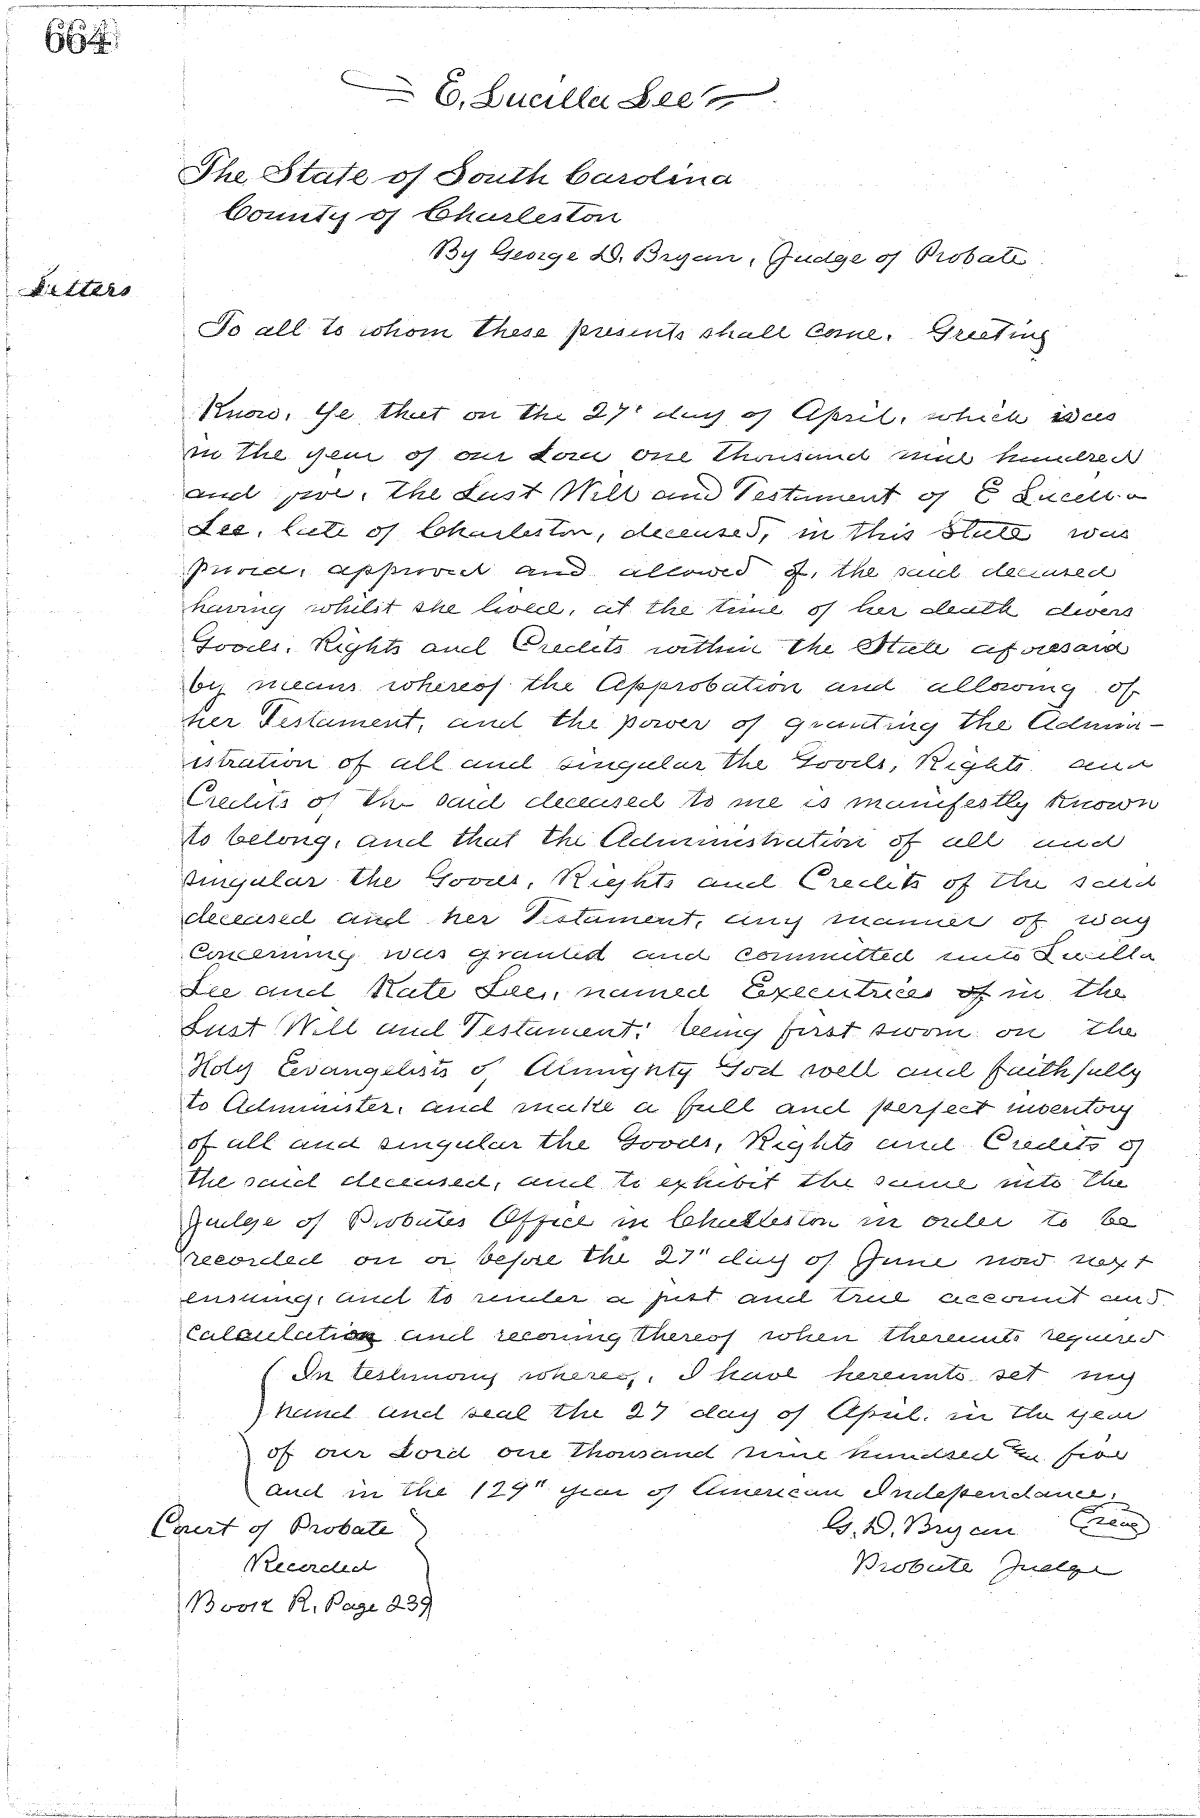 664
E. Lucilla Lee
The State of South Carolina
County of Charleston
By George D. Bryan, Judge of Probate
Letters
To all to whom these presents shall come. Greeting
Know, Ye that on the 27" day of April, which was
in the year of our Lord one thousand nine hundred
and five, the Last Will and Testament of E Lucilla
Lee, late of Charleston, deceased, in this State was
proved, approved and allowed of, the said deceased
having whilst she lived, at the time of her death divers
Goods, Rights and Credits within the State aforesaid
by means whereof the Approbation and allowing of
her Testament, and the power of granting the Admin-
istration of all and singular the Goods, Rights and
Credits of the said deceased to me is manifestly known
to belong, and that the Administration of all and
singular the Goods, Rights and Credits of the said
deceased and her Testament, any manner of way
concerning was granted and committed unto Lucilla
Lee and Kate Lee, named Executrices of in the
Last Will and Testament: being first sworn on the
Holy Evangelists of Almighty God well and faithfully
to Administer, and make a full and perfect inventory
of all and singular the Goods, Rights and Credits of
the said deceased, and to exhibit the same into the
Judge of Probates Office in Charleston in order to be
recorded on or before the 27" day of June now next
ensuing, and to render a just and true account and
calculation and reconing thereof when thereunto required
In testimony whereof, I have hereunto set my
hand and seal the 27 day of April. in the year
of our Lord one thousand nine hundred and five
and in the 129" year of American Independance.
Court of Probate
G. D. Bryan (Seal)
Recorded
Probate Judge
Book R. Page 239